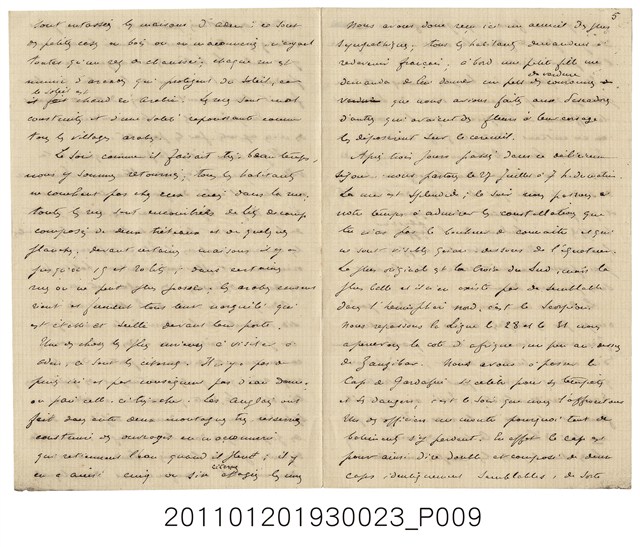 sont entassées les maisons d'aden : ce sont
des petites cases en bois ou en maçonnerie n'ayant
toutes qu'un rez de chaussée ; chaque rue est
munie d'arcades qui protègent du soleil, car
le soleil est
chaud en arabie. Les rues sont mal
construites et d'une saleté repoussante comme
tous les villages arabes.
Le soir comme il faisait très beau temps,
nous y sommes retournés ; tous les habitants
ne couchent pas chez eux mais dans la rue ;
toutes les rues sont encombrées de lits de camp
composés de deux tréteaux et de quelques
planches, devant certaines maisons il y a
jusqu'à 15 et 20 lits ; dans certaines
rues on ne peut plus passer. Les arabes causent
et fument tous leur narguilé qui
est devant leur porte.
Une des choses les plus curieuses à visiter à
aden, ce sont les citernes. Il n'y a pas de
puits ici et par conséquent pas d'eau douce,
ou puis elle est très cher. Les anglais ont
fait dans entre deux montagnes très resserrées
construire des ouvrages en maçonnerie
qui retiennent l'eau quand il pleut ; il y
citernes
en a ainsi cinq ou six étagées les unes
5
Nous avons donc reçu ici un accueil des plus
sympathiques ; tous les habitants demandent à
redevenir français, à bord une petite fille me
demanda de lui donner un petit
de verdure
que nous avions faites aux Seychelles
d'autres qui avaient des fleurs à leur corsage
les déposèrent sur le cercueil.
Après trois jours passés dans ce délicieux
séjour nous partons le 27 Juillet à 7 h. du matin.
La mer est splendide ; le soir nous passons
notre temps à admirer les constellations que
tu n'as pas le bonheur de connaître et qui
ne sont visibles qu'au dessous de l'équateur.
La plus original est la Croix du Sud, mais la
plus belle et il n'en existe pas de semblable
dans l'hémisphère nord, c'est le Scorpion.
Nous repassons la Ligne le 28 et le 31 nous
apercevons la côte d'afrique, un peu au dessus
de Zanzibar. Nous avons à passer le
Cap de Gardafui si célèbre pour ses tempêtes
et ses dangers ; c'est le soir que nous l'affrontons
Un des officiers me montre pourquoi tant de
bâtiments s'y perdent. En effet le cap est
pour ainsi dire double et composé de deux
caps, identiquement semblables, de sorte
201101201930023_P009